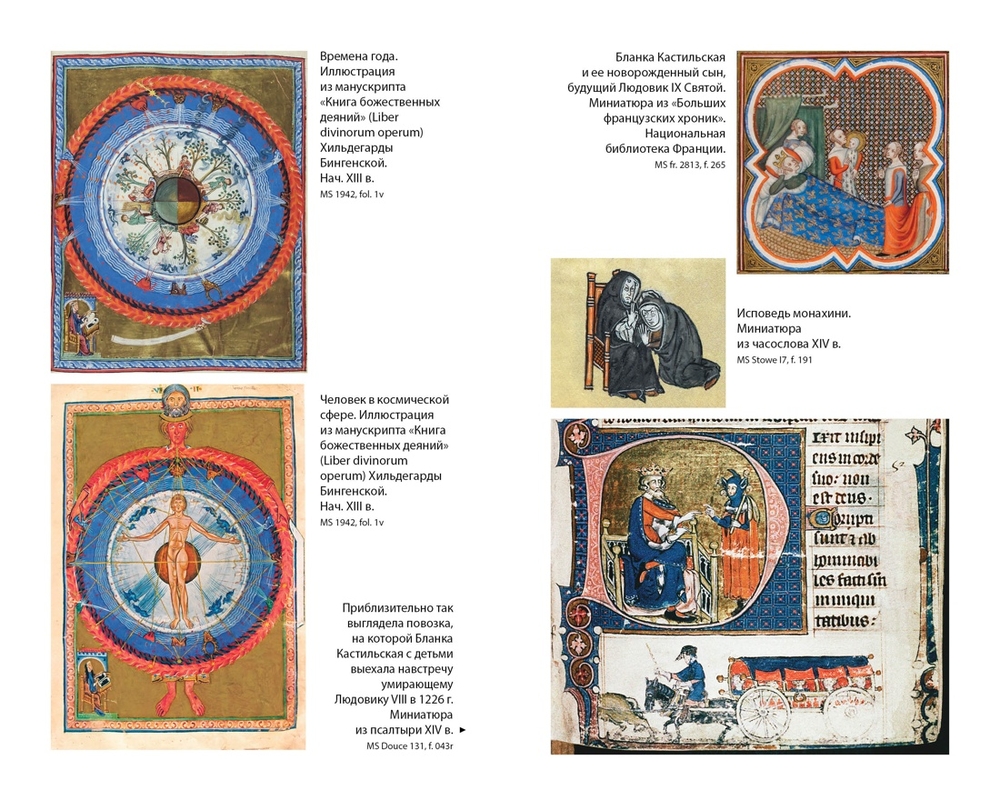 Времена года.
Иллюстрация
из манускрипта
«Книга божественных
деяний» (Liber
divinorum operum)
Хильдегарды
Бингенской.
Нач. XIII в.
MS 1942, fol. 1v
Человек в космической
сфере. Иллюстрация
из манускрипта «Книга
божественных деяний»
(Liber divinorum
operum) Хильдегарды
Бингенской.
Нач. XIII в.
MS 1942, fol. 1v
Приблизительно так
выглядела повозка,
на которой Бланка
Кастильская с детьми
выехала навстречу
умирающему
Людовику VIII в 1226 г.
Миниатюра
из псалтыри XIV в. ►
MS Douce 131, f. 043r
Бланка Кастильская
и ее новорожденный сын,
будущий Людовик IX Святой.
Миниатюра из «Больших
французских хроник».
Национальная
библиотека Франции.
MS fr. 2813, f. 265
Исповедь монахини.
Миниатюра
из часослова XIV в.
MS Stowe I7, f. 191
ixit insipi
ens in corde
suo: non
est deus.
Corrupti
sunt ⁊ ab
hominabi
les facti sūt
in iniqui
tatibus: